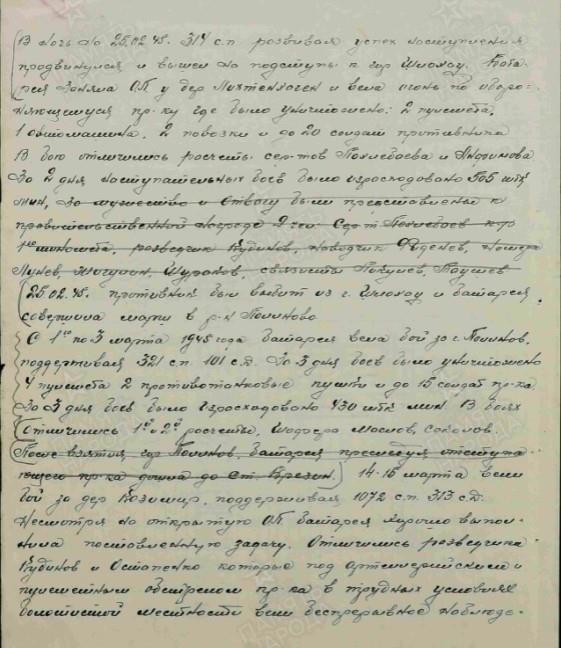 В ночь на 25.02.45. 314 с.п. развивая успех наступления
продвинулся и вышел на подступы к гор Шлохау. Бата-
рея заняла ОП у дер и вела огонь по оборо-
няющемуся пр-ку где было уничтожено: 2 пулемета,
1 автомашина, 2 повозки и до 20 солдат противника
В бою отличились расчеты сер-тов и
За 2 дня наступательных боев было израсходовано 505 штк
мин, за мужество и отвагу были представлены к
правительственной награде 9 чел. Сер-т к-р
1го миномета, разведчик Кубинов, наводчик номера
связисты
25.02.45. противник был выбит из г. Шлохау и батарея
совершила марш в р-н Полинова
С 1го по 3 марта 1945 года батарея вела бой за г. Полинов,
поддерживая 321 с.п. 101 с.д. За 3 дня боев было уничтожено
4 пулемета 2 противотанковые пушки и до 15 солдат пр-ка
За 3 дня боев было израсходовано 430 штк мин. В боях
отличились 1й и 2й расчеты, шофера Маслов, Соколов
После взятия гор Полинов, батарея преследуя отступа-
ющего пр-ка дошла до ст. 14-15 марта вели
бой за дер поддерживая 1072 с.п. 313 с.д.
Несмотря на открытую ОП батарея хорошо выпол-
нила поставленную задачу. Отличились разведчики
Кубинов и Остапенко которые под артиллерийским и
пулеметным обстрелом пр-ка в трудных условиях
болотистой местности вели беспрерывное наблюде-